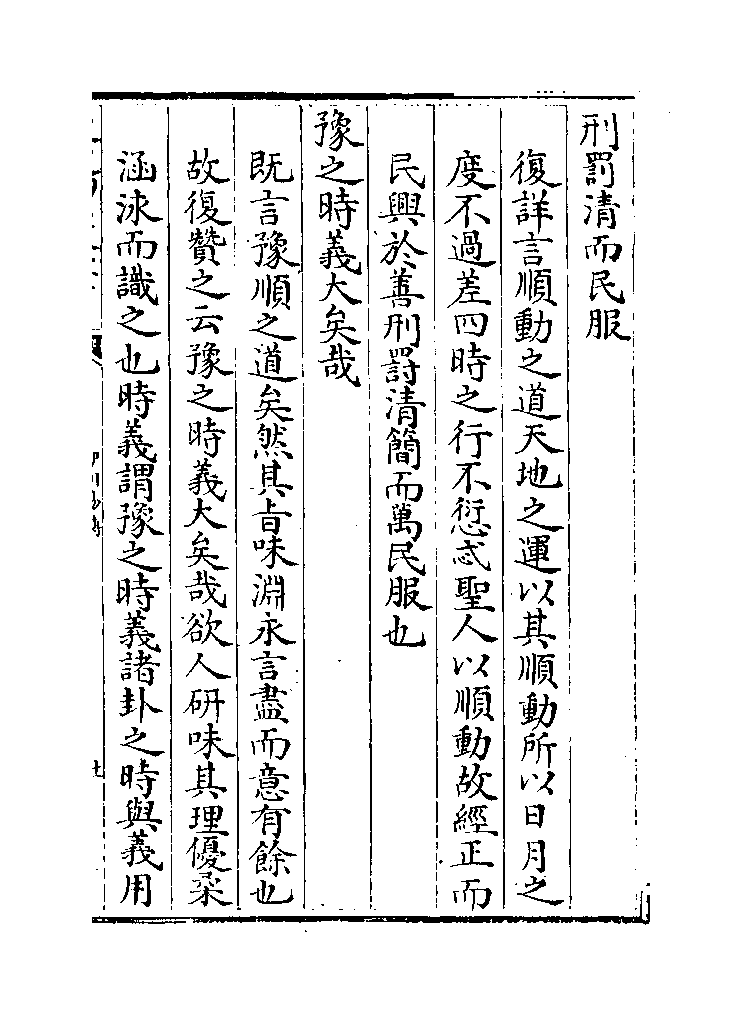 刑罰清而民服
復詳言順動之道天地之運以其順動所以日月之
度不過差四時之行不愆忒聖人以順動故經正而
民興於善刑罰清簡而萬民服也
豫之時義大矣哉
既言豫順之道矣然其旨味淵永言盡而意有餘也
故復贊之云豫之時義大矣哉欲人研味其理優柔
涵泳而識之也時義謂豫之時義諸卦之時與義用